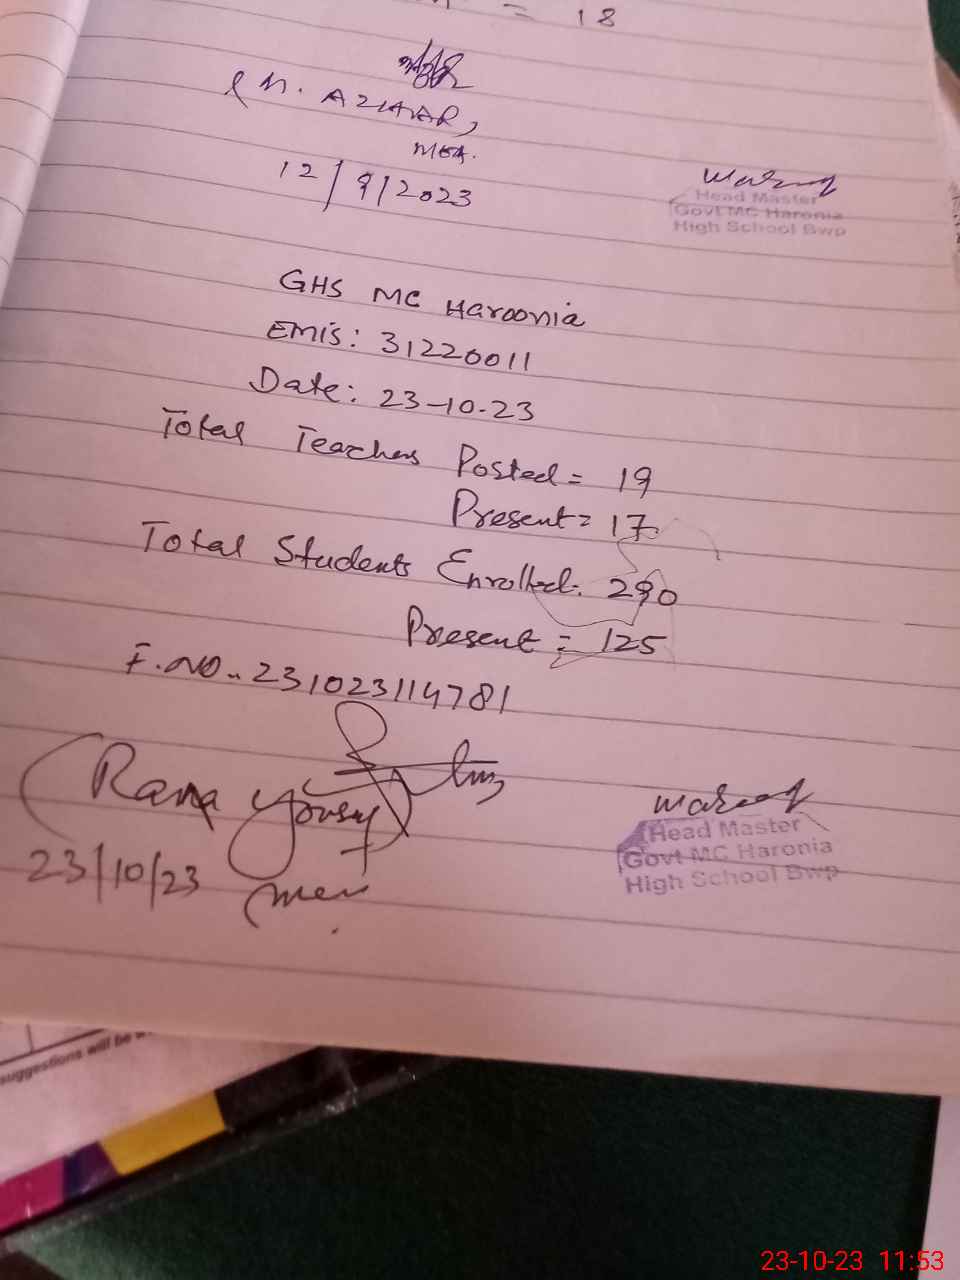 = 18
(M. AZHAR,
MEA.
12/9/2023
Head Master
Govt MC Haronia
High School Bwp
GHS MC Haroonia
EMIS: 31220011
Date: 23-10-23
Total Teachers Posted = 19
Present = 17
Total Students Enrolled: 290
Present = 125
F.NO.. 231023114781
(Rana Yousuf)
23/10/23
Head Master
Govt MC Haronia
High School Bwp
suggestions will be
23-10-23 11:53